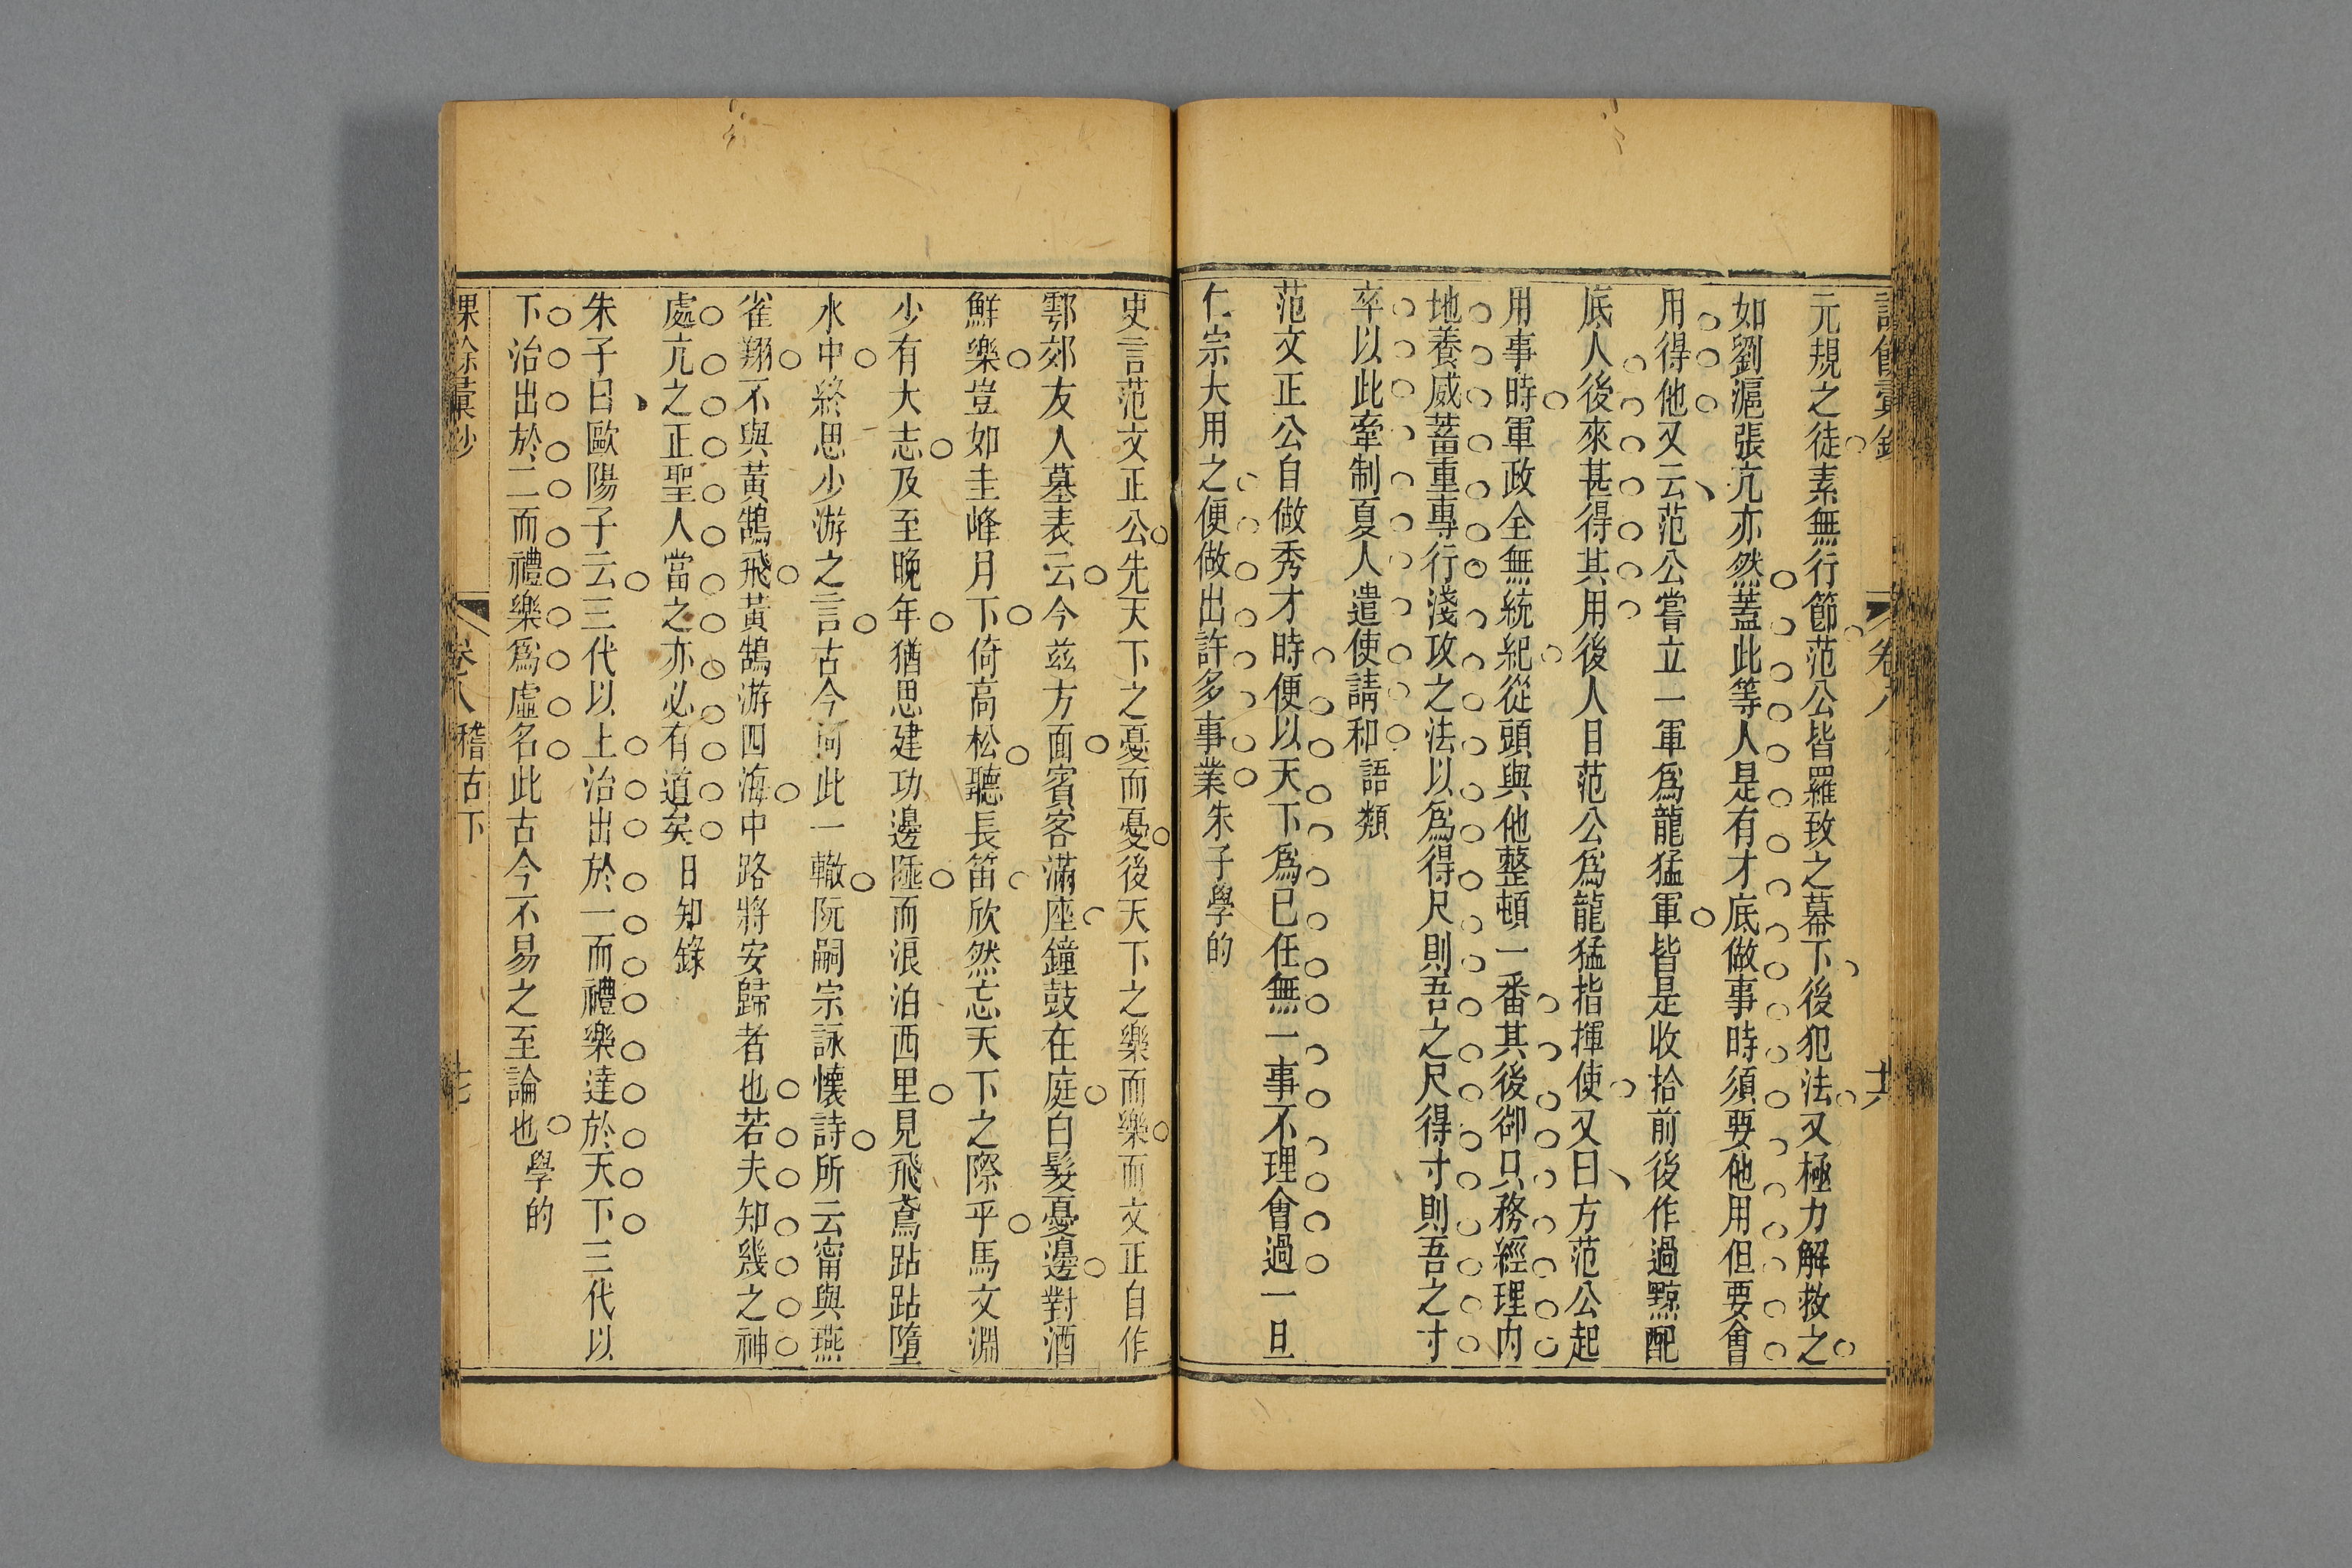 元規之徒素無行節范公皆羅致之幕下後犯法又極力解救之
如劉滬張亢亦然蓋此等人是有才底做事時須要他用但要會
用得他又云范公嘗立一軍爲龍猛軍皆是收拾前後作過黥配
底人後來甚得其用後人目范公爲龍猛指揮使又曰方范公起
用事時軍政全無統紀從頭與他整頓一番其後卻只務經理内
地養威蓄重專行淺攻之法以爲得尺則吾之尺得寸則吾之寸
卒以此牽制夏人遣使請和語類
范文正公自做秀才時便以天下爲已任無一事不理會過一旦
仁宗大用之便做出許多事業朱子學的
史言范文正公先天下之憂而憂後天下之樂而樂而文正自作
鄠郊友人墓表云今兹方面賓客滿座鐘鼓在庭白髮憂邊對酒
鮮樂豈如圭峰月下倚高松聽長笛欣然忘天下之際乎馬文淵
少有大志及至晚年猶思建功邊陲而浪泊西里見飛鳶跕跕墮
水中終思少游之言古今同此一轍阮嗣宗詠懷詩所云甯與燕
雀翔不與黃鵠飛黃鵠游四海中路將安歸者也若夫知幾之神
處亢之正聖人當之亦必有道矣日知錄
朱子曰歐陽子云三代以上治出於一而禮樂達於天下三代以
下治出於二而禮樂爲虛名此古今不易之至論也學的
課餘彙鈔 卷八 稽古下 廿七